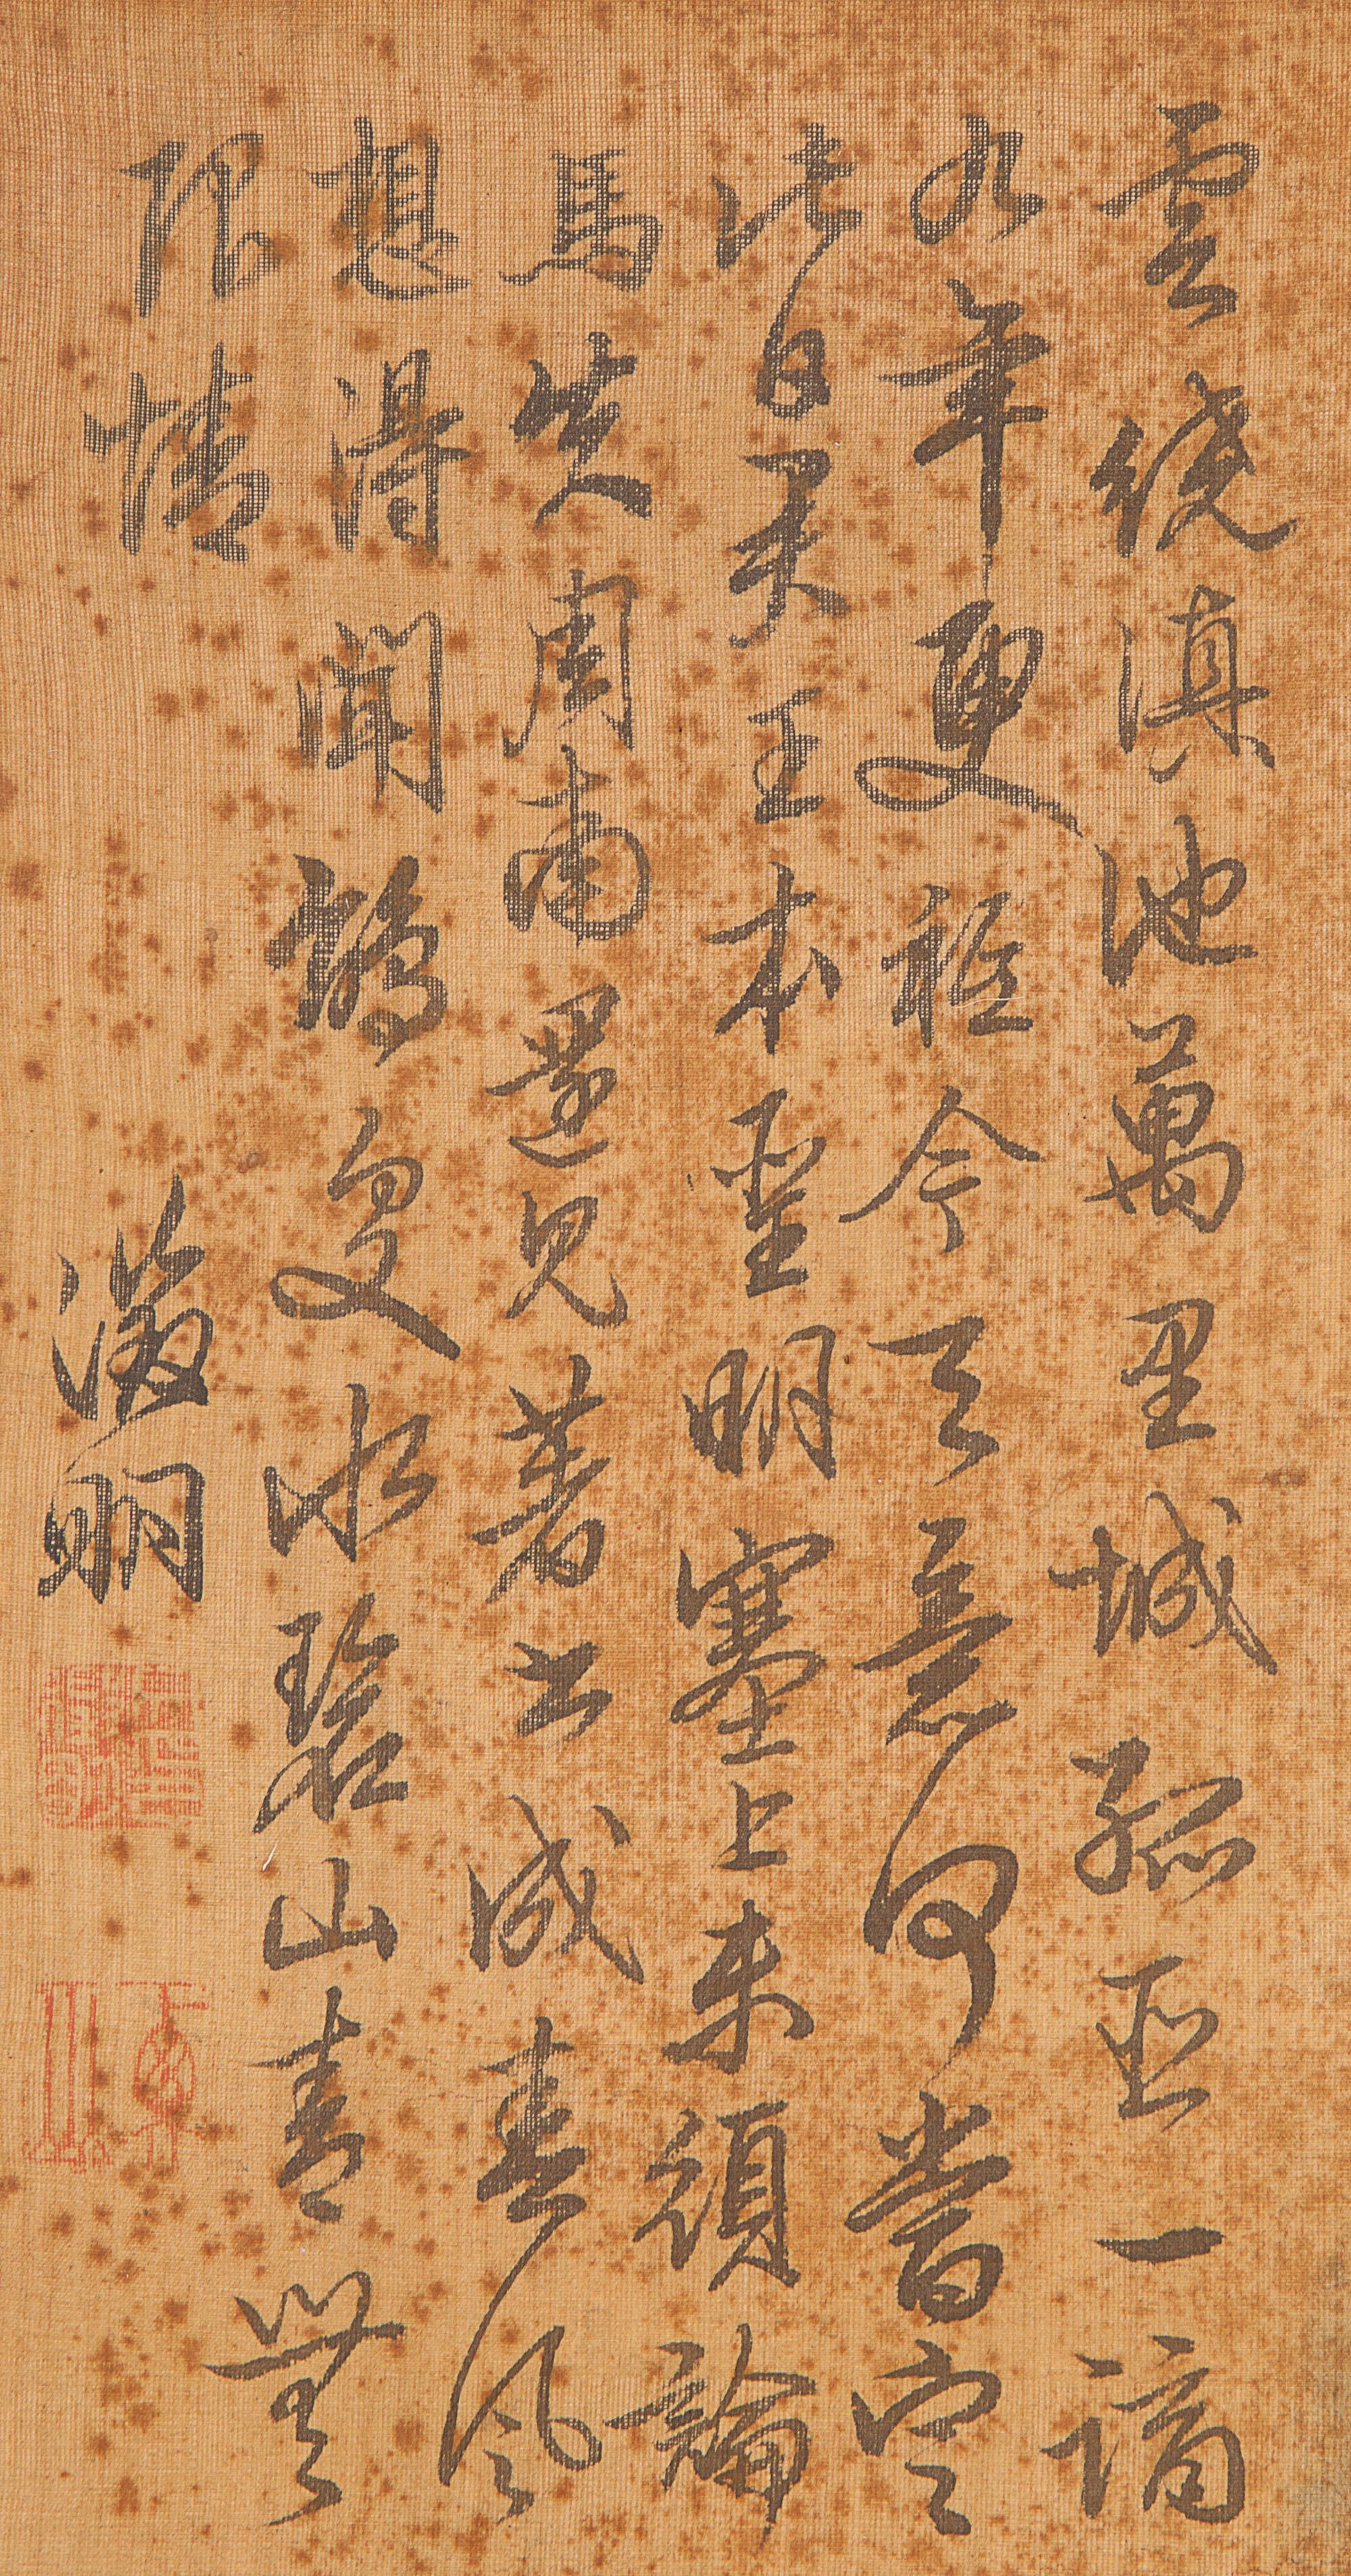 雲繞滇池萬里城孤臣一謫
九年更祗今天意何嘗定
此日王本聖明塞上未須論
馬失周南還見著書成春風
想得聞鵑處水碧山青無
限情
徵明